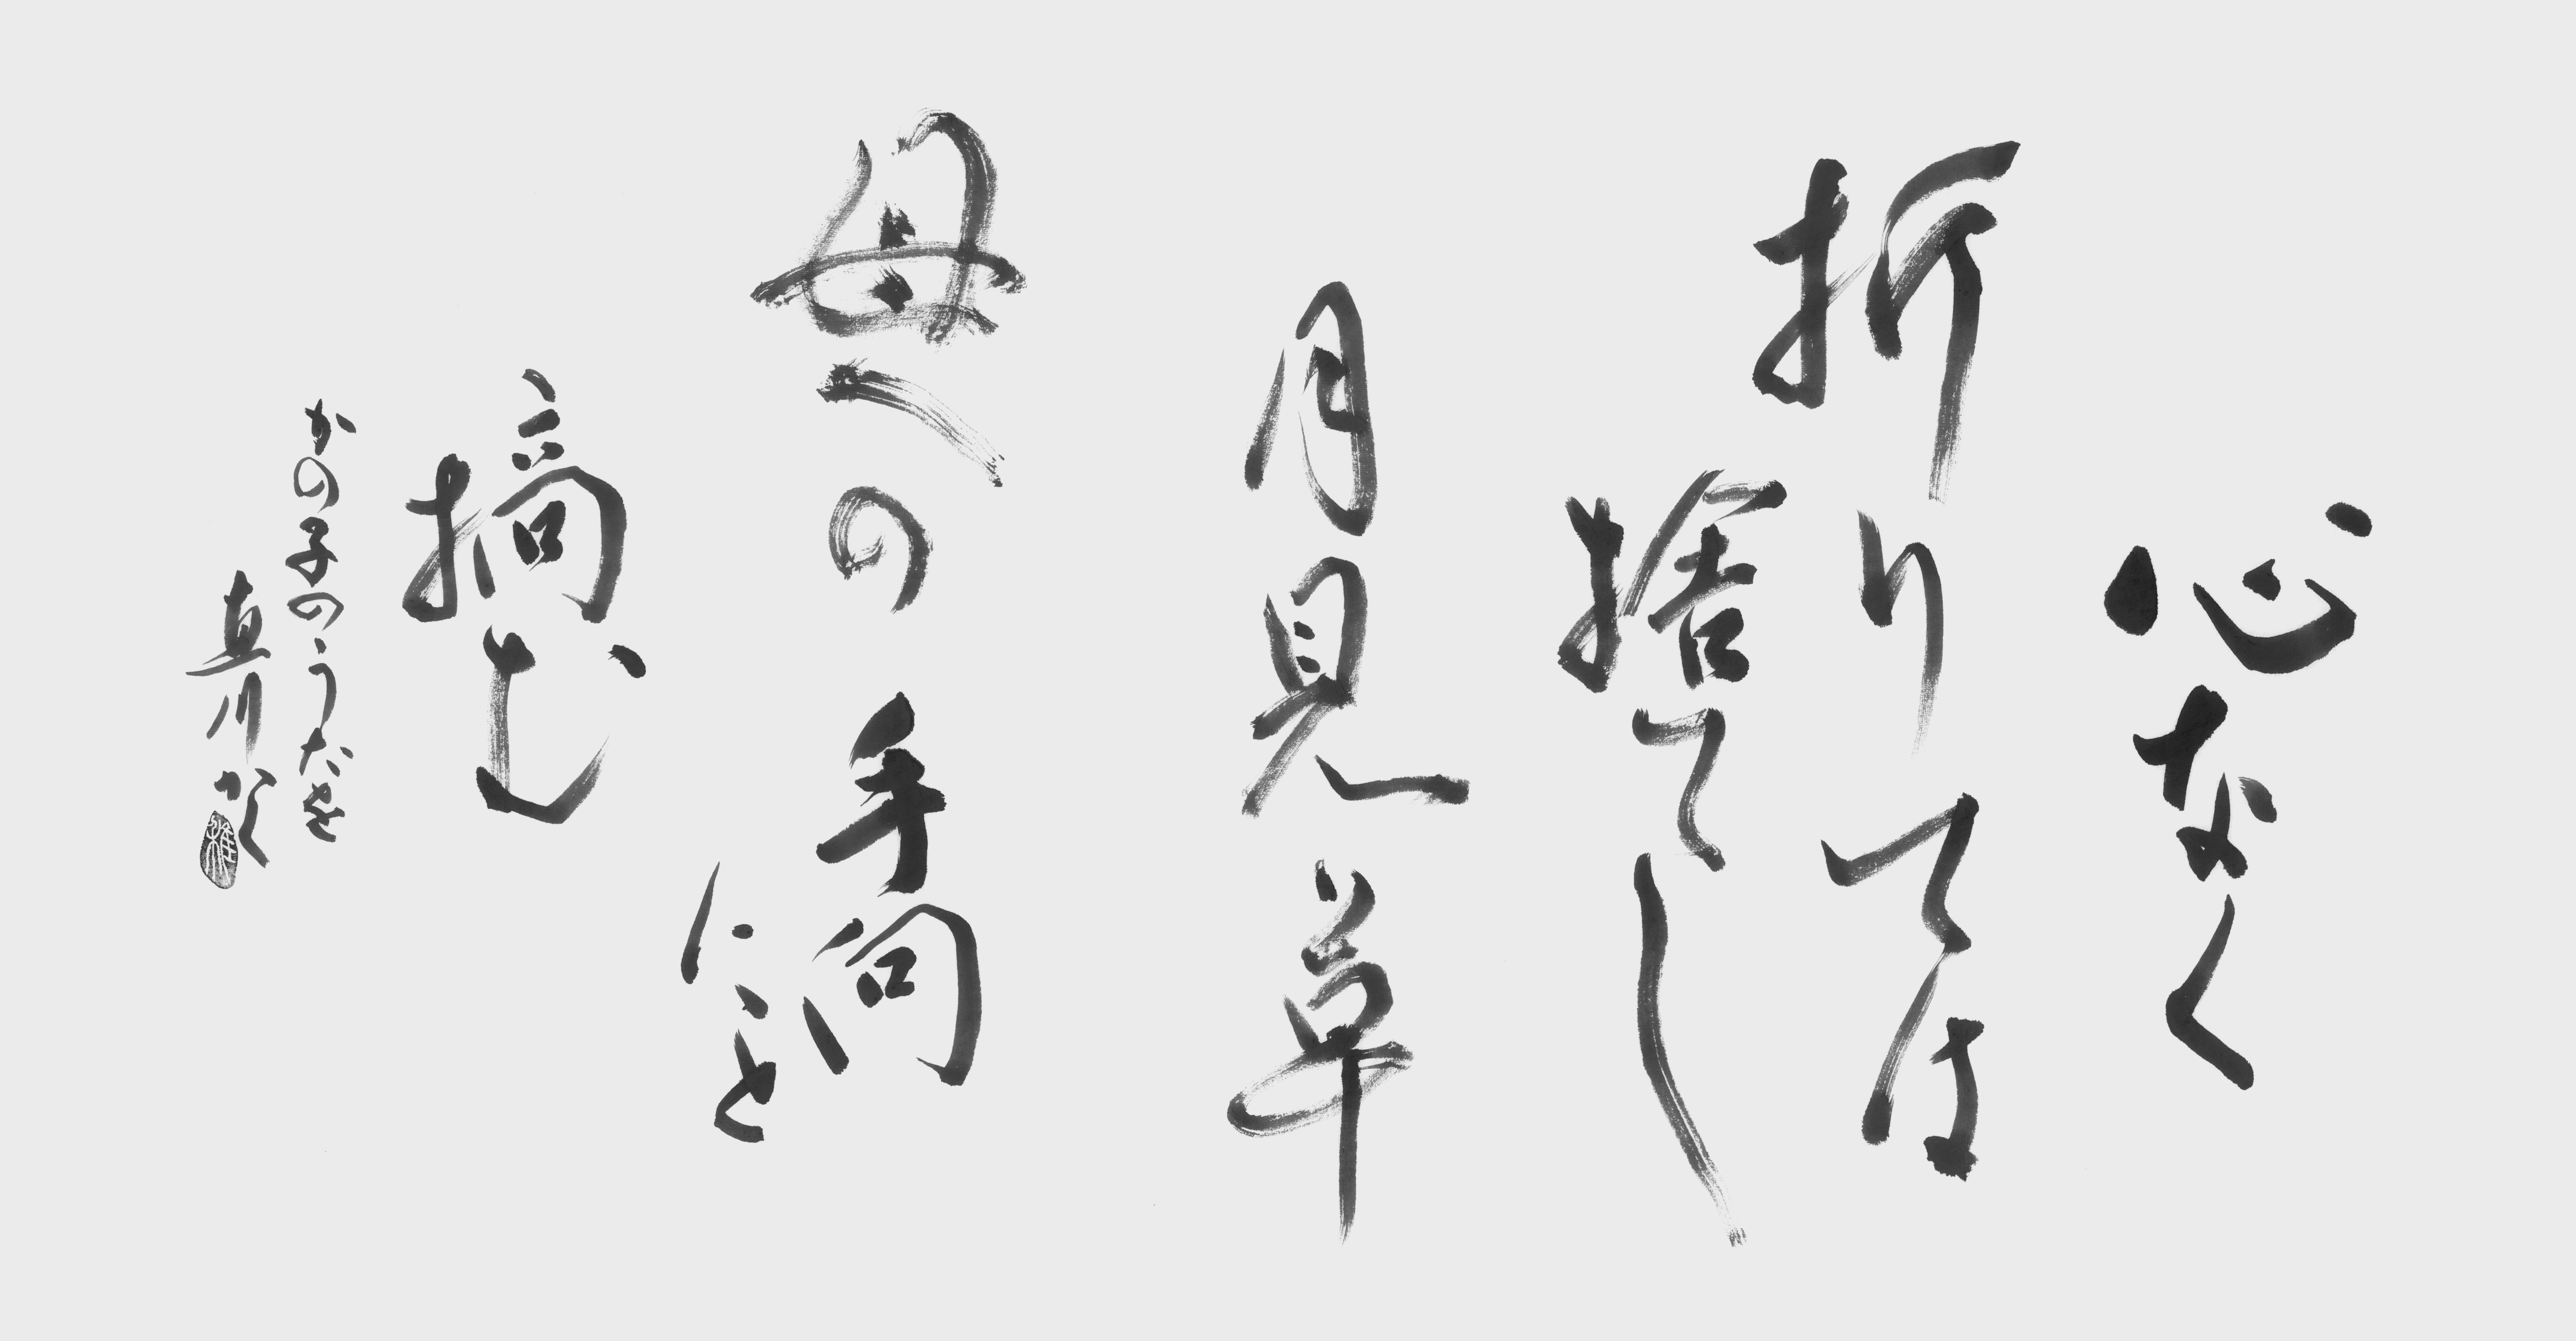 心なく
折りては
捨てし
月見草
母への手向
にと
摘む
かの子のうたを
真川かく
雅